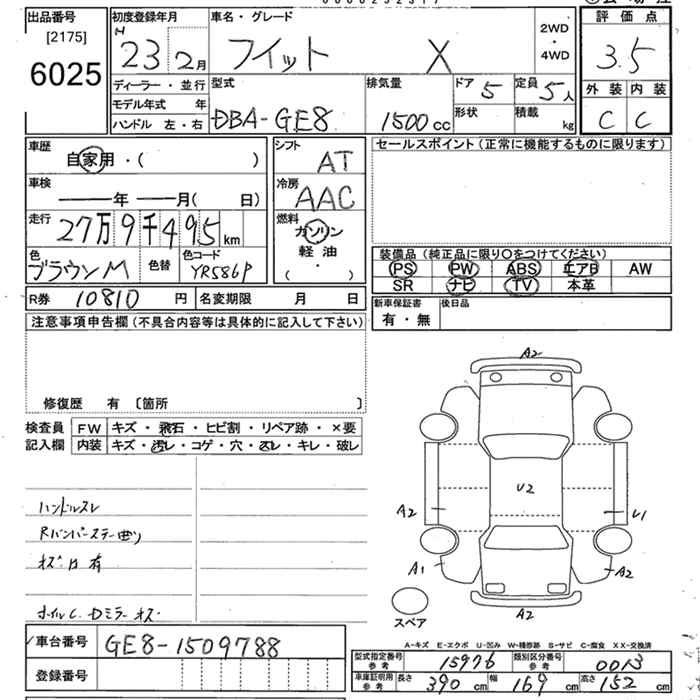 出品番号 初度登録年月 車名・グレード 評価点
[2175]
6025
H 23 2月 フィット X
2WD ・ 4WD
3.5
ディーラー・並行 型式 排気量 ドア 5 定員 5人 外装 内装
モデル年式 年 DBA-GE8 1500cc 形状 積載 kg C C
ハンドル 左・右
車歴 自家用・( ) シフト AT セールスポイント(正常に機能するものに限ります)
車検 年 月( 日) 冷房 AAC
走行 27万9千495km 燃料 ガソリン
軽油
( ・ )
色 ブラウンM 色替 色コード YR586P
装備品(純正品に限り○をつけてください)
PS PW ABS エアB AW
SR ナビ TV 本革
R券 10810円 名変期限 月 日 新車保証書 後日品
有・無
注意事項申告欄(不具合内容等は具体的に記入して下さい)
修復歴 有 〔箇所 〕
検査員 FW キズ・飛石・ヒビ割・リペア跡・×要
記入欄 内装 キズ・汚レ・コゲ・穴・スレ・キレ・破レ
A2
U2
A2 U1
A1 A2
A2
スペア
ハンドルスレ
Rバンパーステー曲り
有
A-キズ E-エクボ U-凹み W-補修跡 S-サビ C-腐食 XX-交換済
車台番号 GE8-1509788
登録番号
型式指定番号 参考 15976 類別区分番号 参考 0013
車庫証明用 参考 長さ 390cm 幅 169cm 高さ 152cm